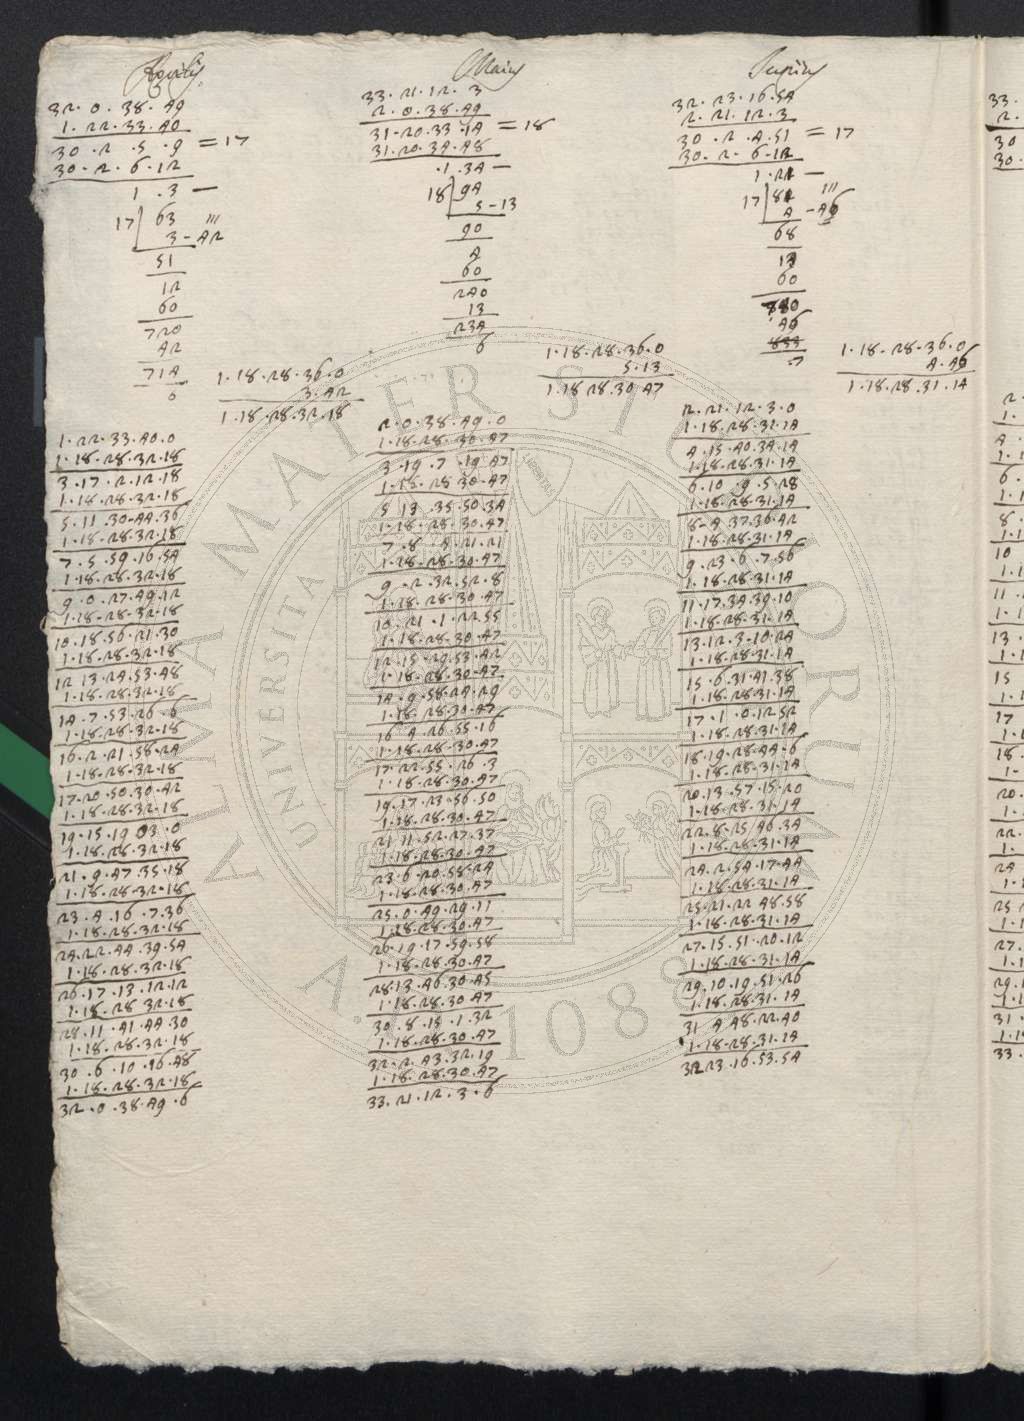 Aprilis
32.0.38.49
1.22.33.40
30.2.5.9 = 17
30.2.6.12
1.3 —
17 63 '''
3 - 42
51
12
60
720
42
714
6
1.18.28.36.0
3.42
1.18.28.32.18
1.22.33.40.0
1.18.28.32.18
3.17.2.12.18
1.18.28.32.18
5.11.30.44.36
1.18.28.32.18
7.5.59.16.54
1.18.28.32.18
9.0.27.49.12
1.18.28.32.18
10.18.56.21.30
1.18.28.32.18
12.13.24.53.48
1.18.28.32.18
14.7.53.26.6
1.18.28.32.18
16.2.21.58.24
1.18.28.32.18
17.20.50.30.42
1.18.28.32.18
19.15.19.03.0
1.18.28.32.18
21.9.47.35.18
1.18.28.32.18
23.4.16.7.36
1.18.28.32.18
24.22.44.39.54
1.18.28.32.18
26.17.13.12.12
1.18.28.32.18
28.11.41.44.30
1.18.28.32.18
30.6.10.16.48
1.18.28.32.18
32.0.38.49.6
Maius
33.21.12.3
2.0.38.49
31.20.33.14 = 18
31.20.34.48
.1.34 —
18 94
5 - 13
90
4
60
240
13
234
6
1.18.28.36.0
5.13
1.18.28.30.47
2.0.38.49.0
1.18.28.30.47
3.19.7.19.47
1.18.28.30.47
5.13.35.50.34
1.18.28.30.47
7.8.4.21.21
1.18.28.30.47
9.2.32.52.8
1.18.28.30.47
10.21.1.22.55
1.18.28.30.47
12.15.29.53.42
1.18.28.30.47
14.9.58.24.29
1.18.28.30.47
16.4.26.55.16
1.18.28.30.47
17.22.55.26.3
1.18.28.30.47
19.17.23.56.50
1.18.28.30.47
21.11.52.27.37
1.18.28.30.47
23.6.20.58.24
1.18.28.30.47
25.0.49.29.11
1.18.28.30.47
26.19.17.59.58
1.18.28.30.47
28.13.46.30.45
1.18.28.30.47
30.8.15.1.32
1.18.28.30.47
32.2.43.32.19
1.18.28.30.47
33.21.12.3.6
Junius
32.23.16.54
2.21.12.3
30.2.4.51 = 17
30.2.6.12
1.21 —
17 81 '''
4 - 46
68
13
60
780
46
7
1.18.28.36.0
4.46
1.18.28.31.14
2.21.12.3.0
1.18.28.31.14
4.15.40.34.14
1.18.28.31.14
6.10.9.5.28
1.18.28.31.14
8.4.37.36.42
1.18.28.31.14
9.23.6.7.56
1.18.28.31.14
11.17.34.39.10
1.18.28.31.14
13.12.3.10.24
1.18.28.31.14
15.6.31.41.38
1.18.28.31.14
17.1.0.12.52
1.18.28.31.14
18.19.28.44.6
1.18.28.31.14
20.13.57.15.20
1.18.28.31.14
22.8.25.46.34
1.18.28.31.14
24.2.54.17.44
1.18.28.31.14
25.21.22.48.58
1.18.28.31.14
27.15.51.20.12
1.18.28.31.14
29.10.19.51.26
1.18.28.31.14
31.4.48.22.40
1.18.28.31.14
32.23.16.53.54
ALMA MATER STUDIORUM
UNIVERSITA
A.D. 1088